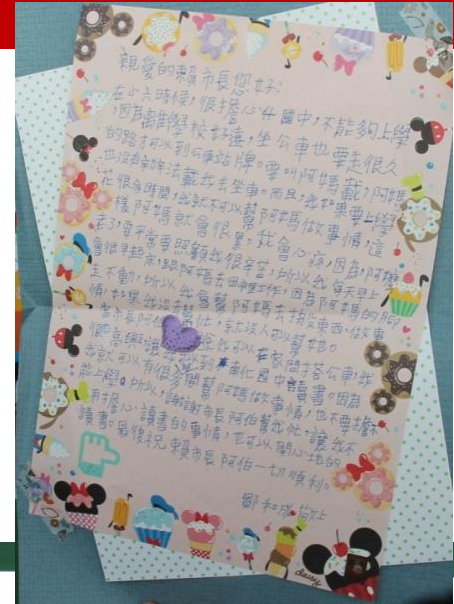 親愛的賴市長您好:
在小六時候,很擔心升國中,不能夠上學
,因為離學校好遠,坐公車也要走很久
的路才可以到車站牌。要叫阿媽載,阿媽
也沒有辦法載我去坐車。而且,我如果要上學
花很多時間,我就不可以幫阿媽做事情,這
樣阿媽就會很累,我會心疼,因為,阿媽
老了,要照顧我很辛苦,所以我每天早上
會很早起來,跟阿媽去田裡工作,因為阿媽的腳
走不動,所以我會幫阿媽去搬東西、做事
情,如果我沒去幫忙,就沒人可以幫她。
市長阿伯
個高興讓我可以到 國中讀書。因為
我就可以有很多時間幫阿媽做事情,也不要擔心不
能上學。所以,謝謝市長阿伯幫我忙,讓我不
用擔心讀書的事情,也可以開心地的
讀書。最後祝 賴市長阿伯一切順利。
鄭和成敬上
daisy